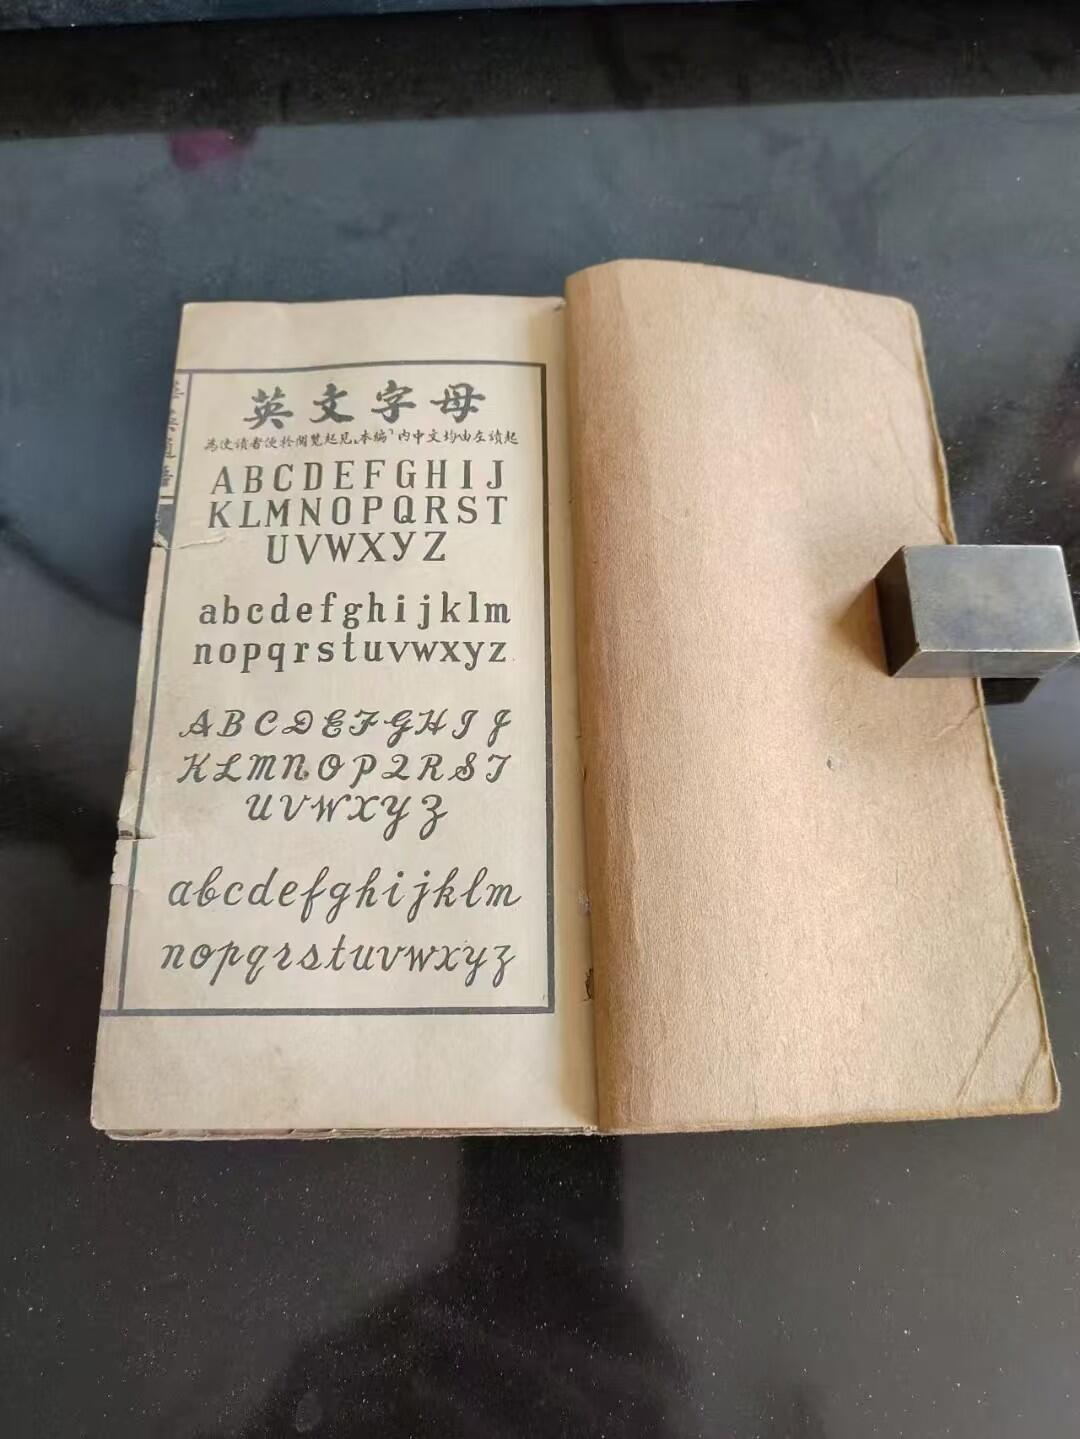 英文字母
為使讀者便於閱覽起見、本編內中文均由左讀起
ABCDEFGHIJ
KLMNOPQRST
UVWXYZ
abcdefghijklm
nopqrstuvwxyz
ABCDEFGHIJ
KLMNOPQRST
UVWXYZ
abcdefghijklm
nopqrstuvwxyz